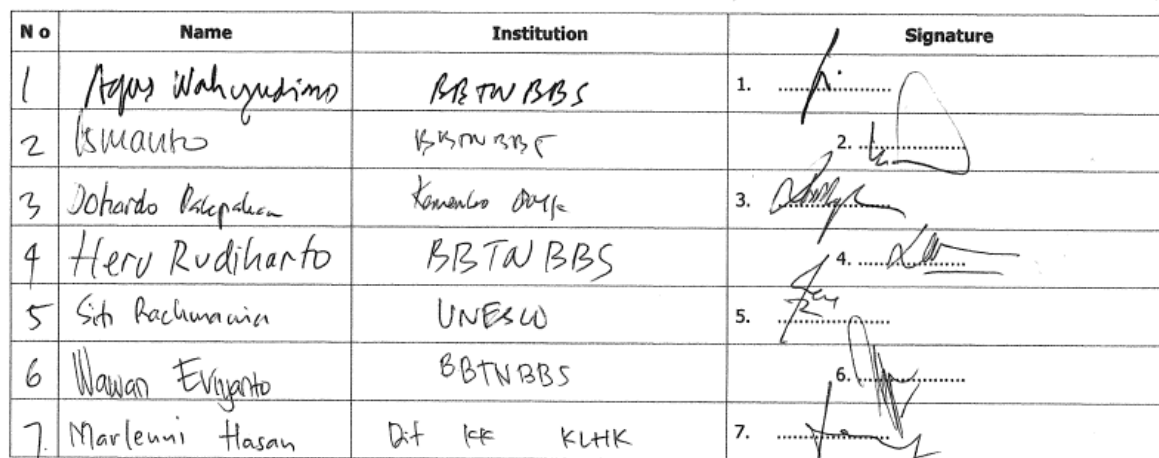 N o Name Institution Signature
1 Agus Wahyudiono BBTNBBS 1. ....................
2 Ismanto BBTNBBS 2. ....................
3 Dohardo Pakpahan Kemenko 3. ....................
4 Heru Rudiharto BBTNBBS 4. ....................
5 Siti Rachmania UNESCO 5. ....................
6 Wawan Eviyanto BBTNBBS 6. ....................
7. Marlenni Hasan Dit KK KLHK 7. ....................